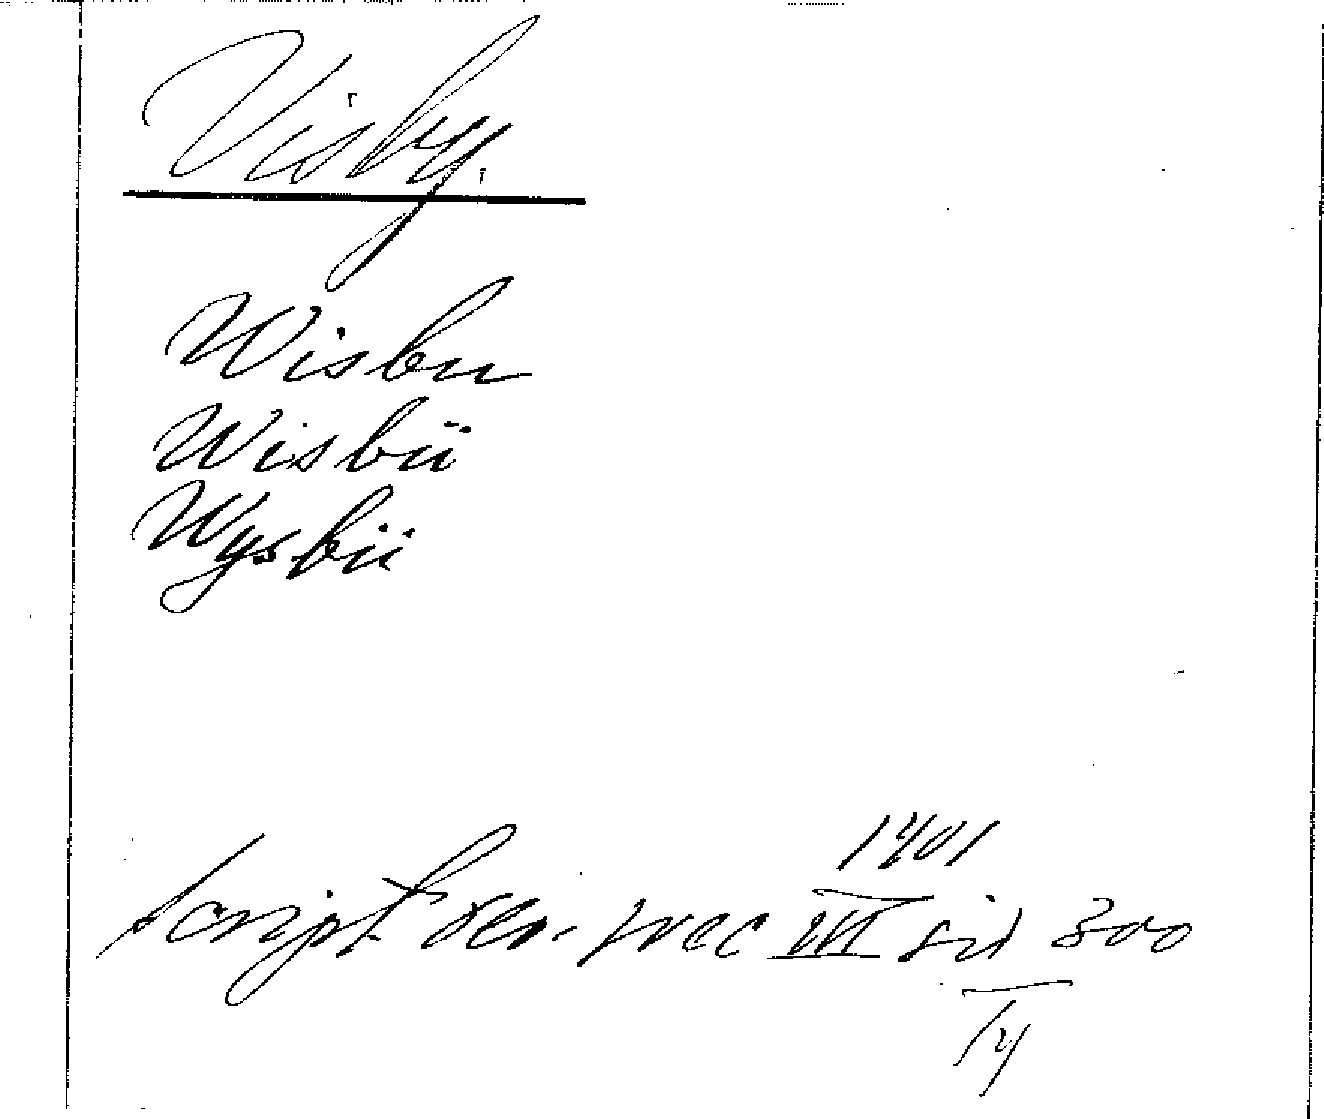 Visby.
Wisbu
Wisbü
Wysbü
1401
Script rer. svec III sid 300
14